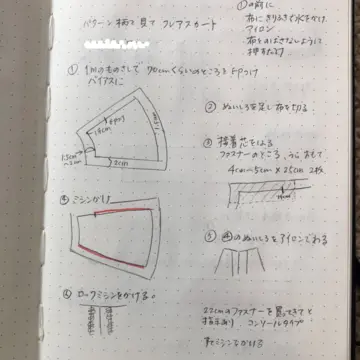 パターン 柄を見て フレアスカート
①の前に
布にきりふきで水をかけ
アイロン
布をのばさないように
押あてよう
① 1mのものさしで 70cmくらいのところを印つけ
バイアスに
18cm
1.5cm
2cm
② ぬいしろを足し布を切る。
③ 接着芯をはる
ファスナーのところ、うらおもて
4cm~5cm×25cm 2枚
④ ミシンがけ
⑤ のぬいしろをアイロンでわる
⑥ ロックミシンをかける。
22cmのファスナーを買ってきてと
指示あり コンソールタイプ
ミシンをかける